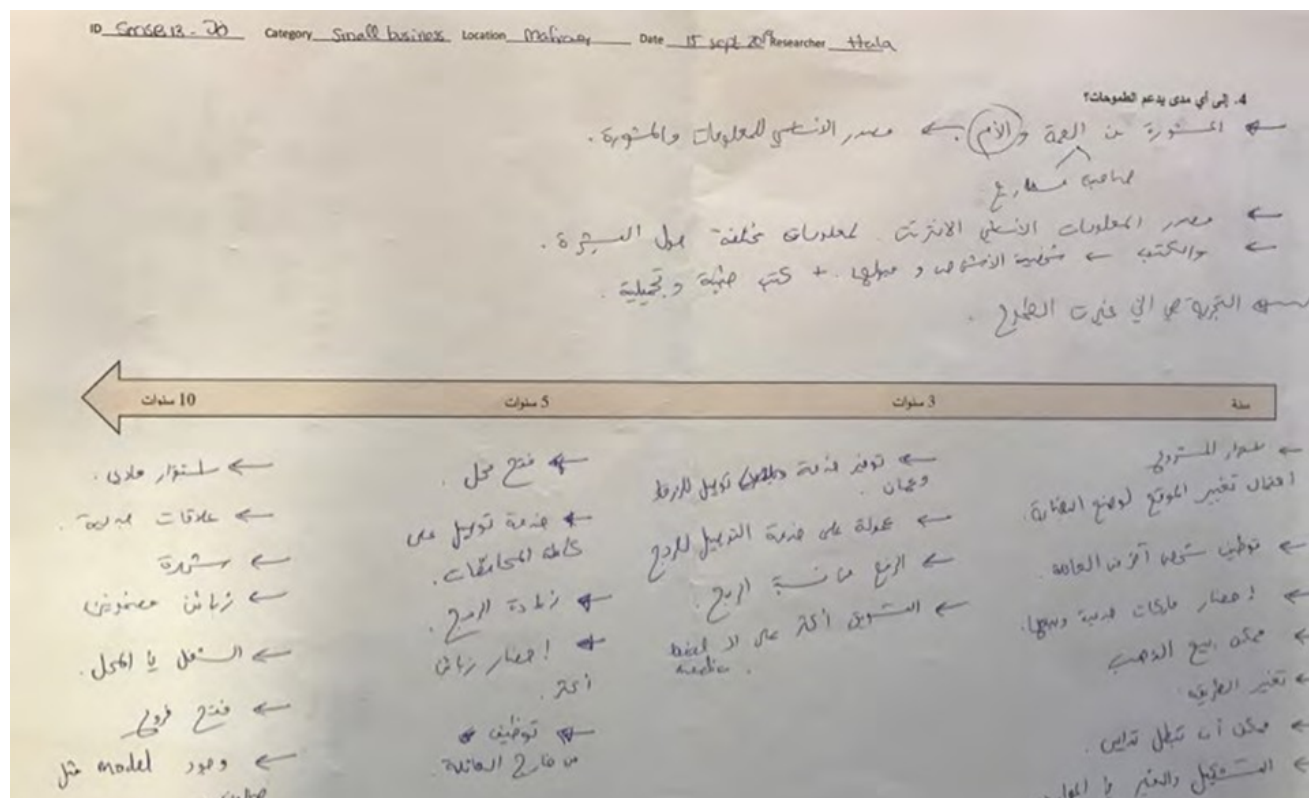 ID Sense13 - Jo Category Small business Location Date 15 sept 2019 Researcher Hala
4. إلى أي مدى يدعم الطموحات؟
← المشورة من العمة والأم ← مصدر الأساسي للمعلومات والمشورة.
صاحبة مشاريع
← مصدر المعلومات الأساسي الانترنت لمعلومات مختلفة حول البشرة.
← والكتب ← شخصية الأشخاص و ميولها. + كتب طبية و تجميلية.
← التجربة هي الي غيرت الطموح.
سنة
3 سنوات
5 سنوات
10 سنوات
احتمال تغيير الموقع لوضع البضاعة.
← توظيف شخص آخر من العائلة.
← احضار ماركات جديدة وبيعها.
← ممكن بيع الذهب
← تغير الطريقة
← ممكن أن تبطل
← توفير خدمة توصيل للزرقا
وعمان.
← عمولة على خدمة التوصيل للربح
← الرفع من نسبة الربح.
← التسويق أكثر على ال
media.
← فتح محل.
← خدمة توصيل على
كافة المحافظات.
← زيادة الربح.
← احضار زبائن
أكثر.
← توظيف
من خارج العائلة.
← استقرار مادي.
← علاقات جديدة.
← شهرة
← زبائن مضمونين
← الشغل بالمحل.
← فتح فروع
← وجود model مثل